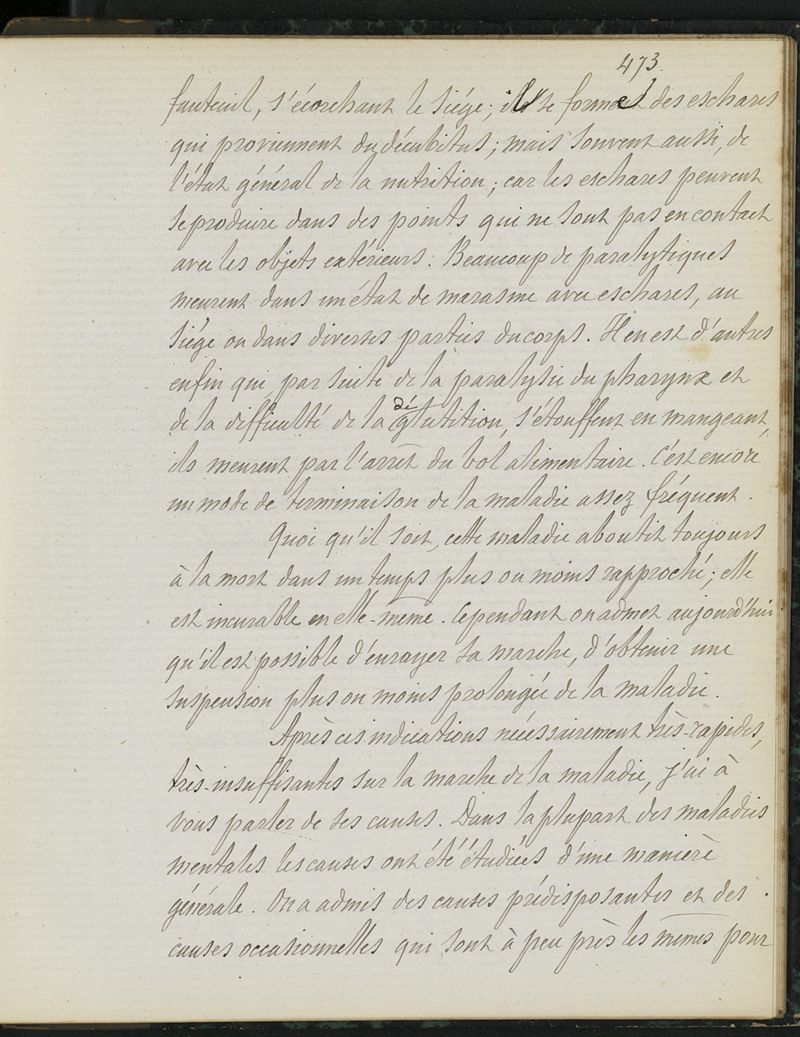 473.
fauteuil, s'écorchant le siége; il se forme des eschares
qui proviennent du décubitus; mais souvent aussi, de
l'état général de la nutrition; car les eschares peuvent
se produire dans des points qui ne sont pas en contact
avec les objets extérieurs. Beaucoup de paralytiques
meurent dans un état de marasme avec eschares, au
siége ou dans diverses parties du corps. Il en est d'autres
enfin qui par suite de la paralysie du pharynx et
de la difficulté de la déglutition, s'étouffent en mangeant,
ils meurent par l'arrêt du bol alimentaire. C'est encore
un mode de terminaison de la maladie assez fréquent.
Quoi qu'il soit, cette maladie aboutit toujours
à la mort dans un temps plus ou moins rapproché; elle
est incurable en elle-même. Cependant on admet aujourd'hui
qu'il est possible d'enrayer sa marche, d'obtenir une
suspension plus ou moins prolongée de la maladie.
Après ces indications nécessairement très-rapides,
très-insuffisantes sur la marche de la maladie, j'ai à
vous parler de ses causes. Dans la plupart des maladies
mentales les causes ont été étudiées d'une manière
générale. On a admis des causes prédisposantes et des
causes occasionnelles qui sont à peu près les mêmes pour